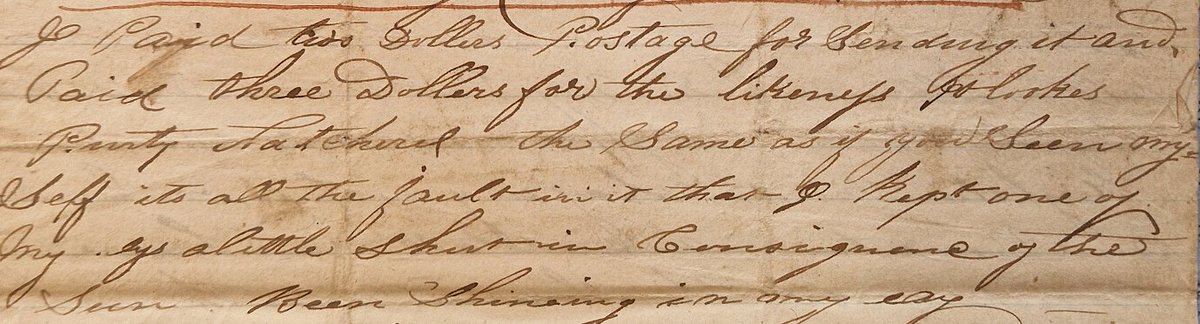 I Paid two Dollers Postage for Sending it and
Paid three Dollers for the likeness It lookes
Purty Natchered the Same as if you Seen my=
Self its all the fault in it that I Kept one of
My eys alittle Shut in Consiquene of the
Sun Been Shineing in my eay